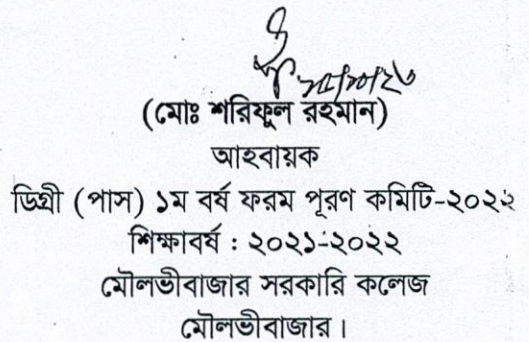 (মোঃ শরিফুল রহমান)
আহবায়ক
ডিগ্রী (পাস) ১ম বর্ষ ফরম পূরণ কমিটি-২০২২
শিক্ষাবর্ষ : ২০২১-২০২২
মৌলভীবাজার সরকারি কলেজ
মৌলভীবাজার।